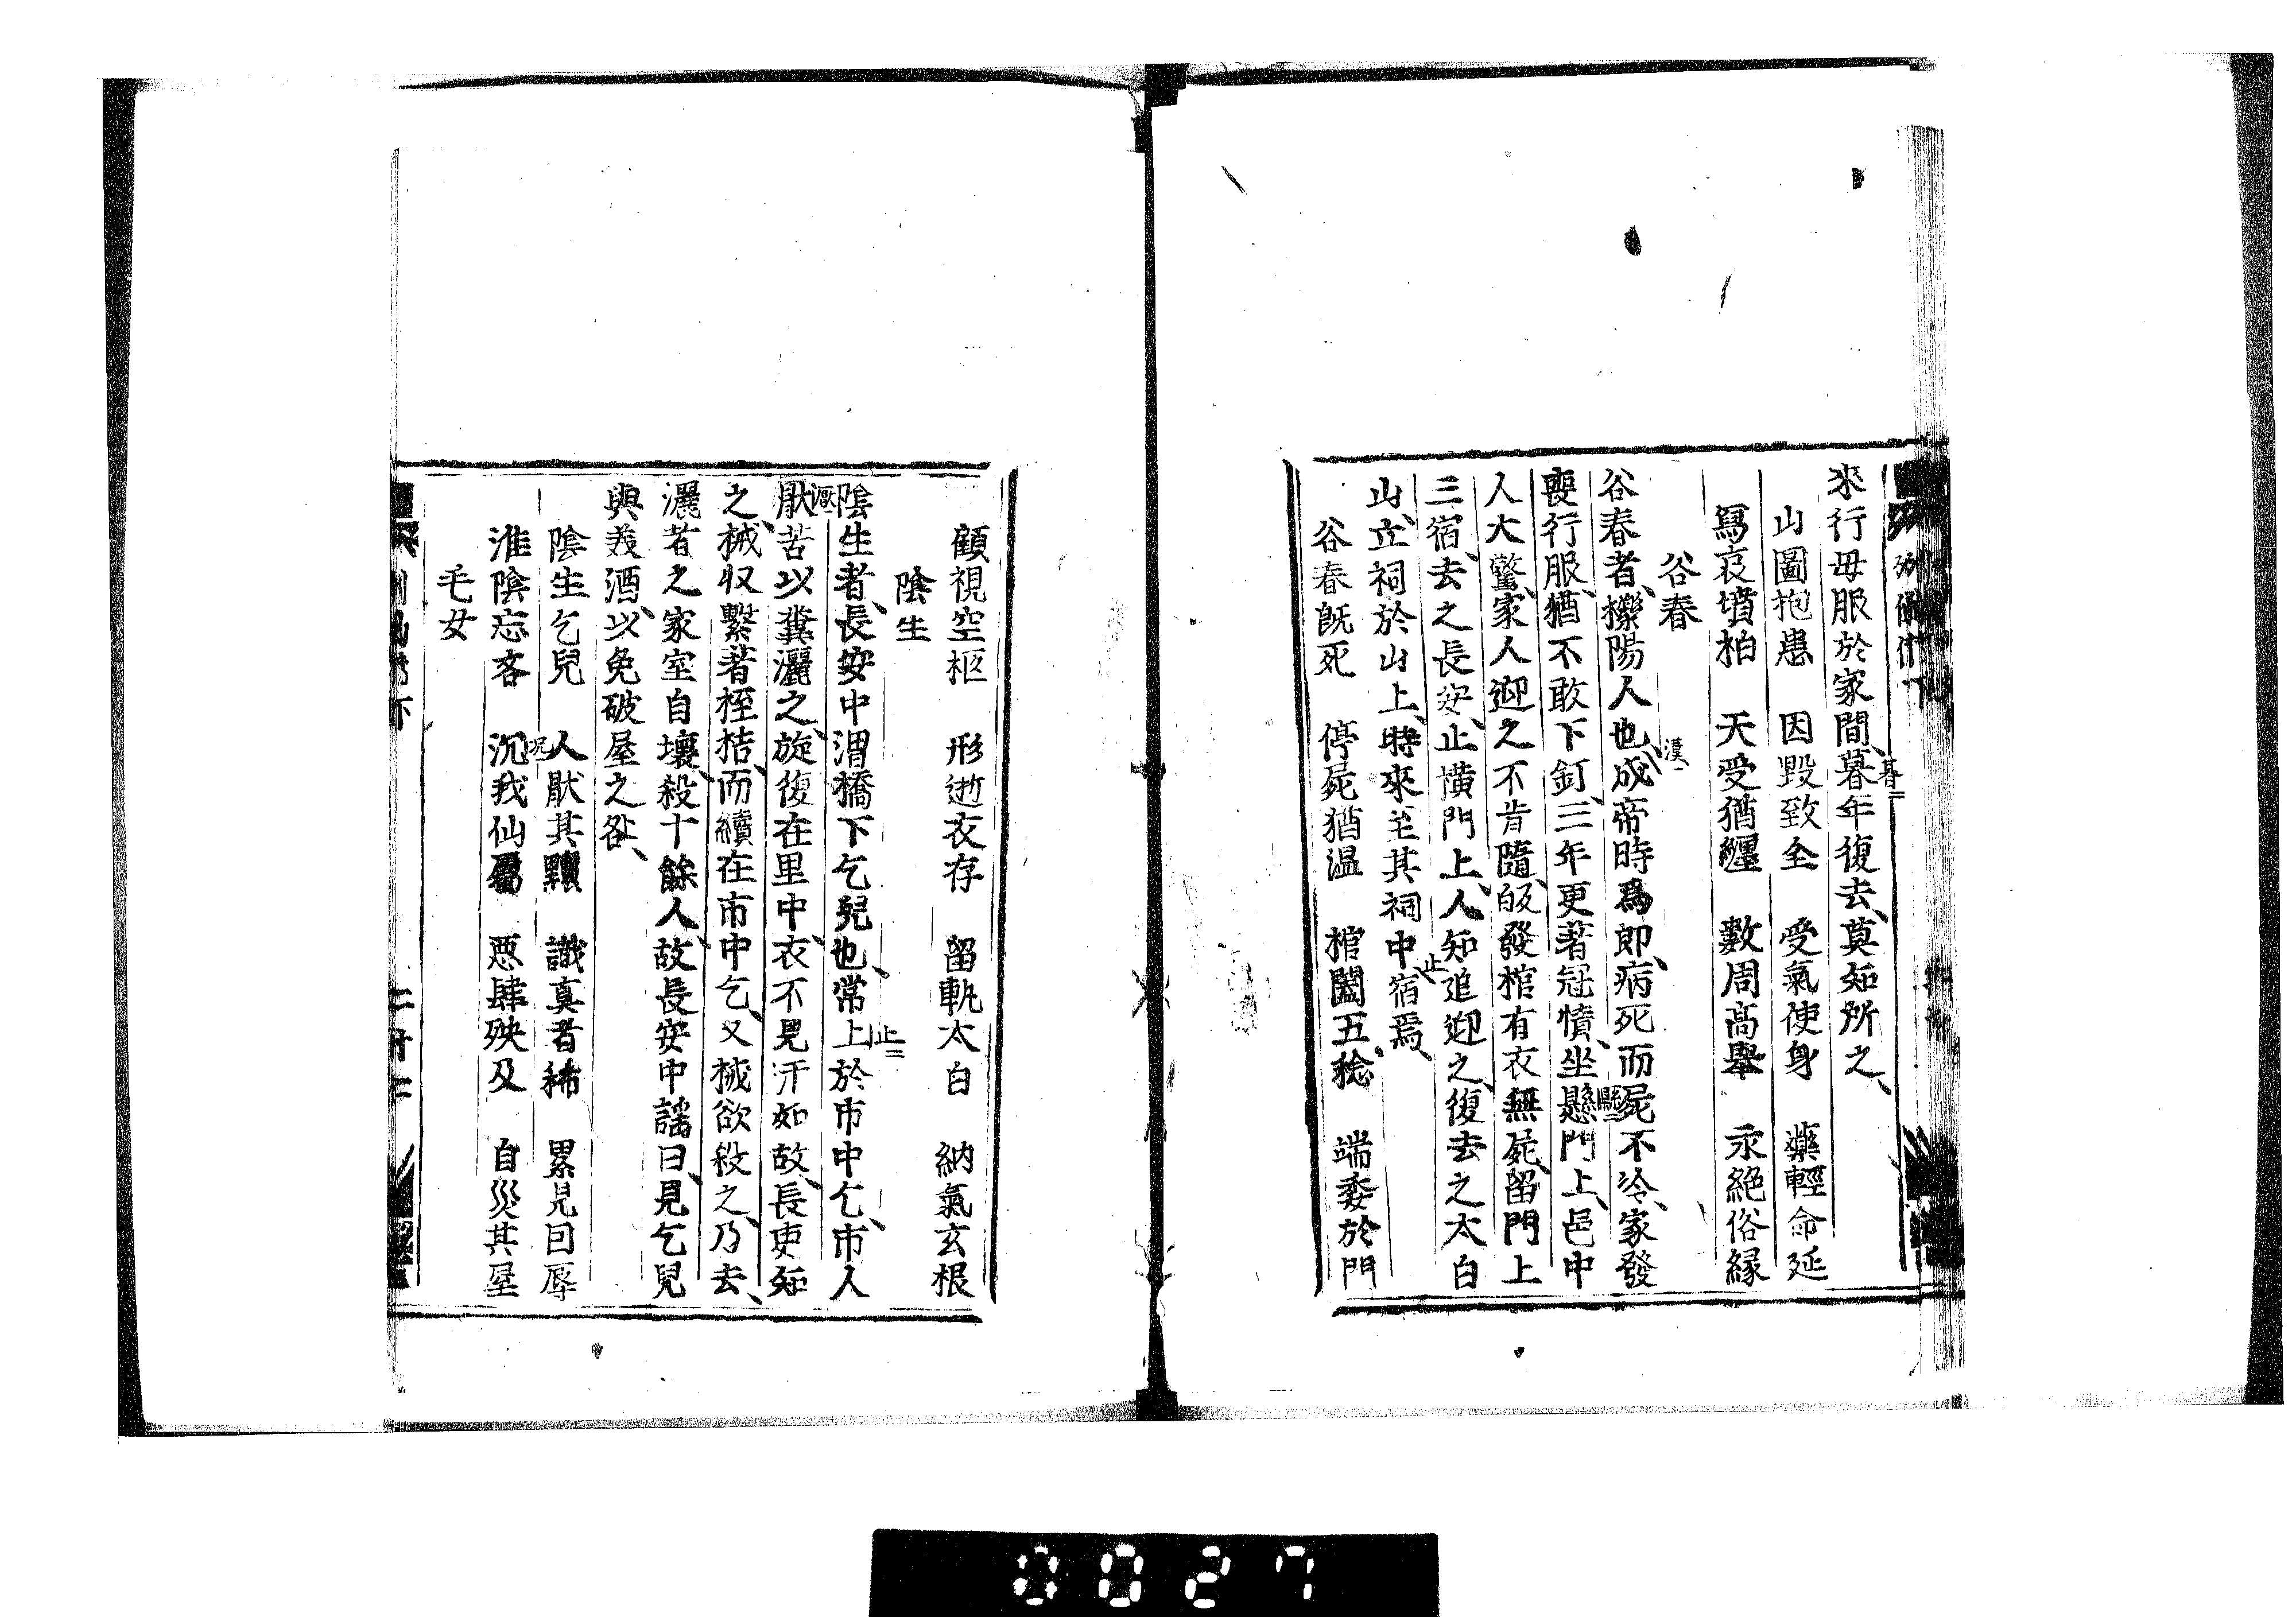 來行毋服於家間暮年復去莫知所之
山圖抱患　因毀致全　受氣使身　藥輕命延
寫哀墳柏　天受猶纏　數周高舉　永絕俗縁
谷春
谷春者櫟陽人也成帝時爲郎病死而屍不冷家發
喪行服猶不敢下釘三年更著冠幘坐懸門上邑中
人大驚家人迎之不肯隨敀發棺有衣無屍留門上
三宿去之長安止橫門上人知追迎之復去之太白
山立祠於山上時來至其祠中止宿焉
谷春既死　停屍猶温　棺闔五稔　端委於門
顧視空柩　形逝衣存　留軌太白　納氣玄根
陰生
陰生者長安中渭橋下乞兒也常止於市中乞市人
猒苦以糞灑之旋復在里中衣不見汙如故長吏知
之械収繫著桎梏而續在市中乞又械欲殺之乃去
灑者之家室自壞殺十餘人故長安中謡曰見乞兒
與美酒以免破屋之咎
陰生乞兒　人猒其黷　識真者稀　累見囙辱
淮陰忘吝　況我仙屬　惡肆殃及　自災其屋
毛女
二十二
0027